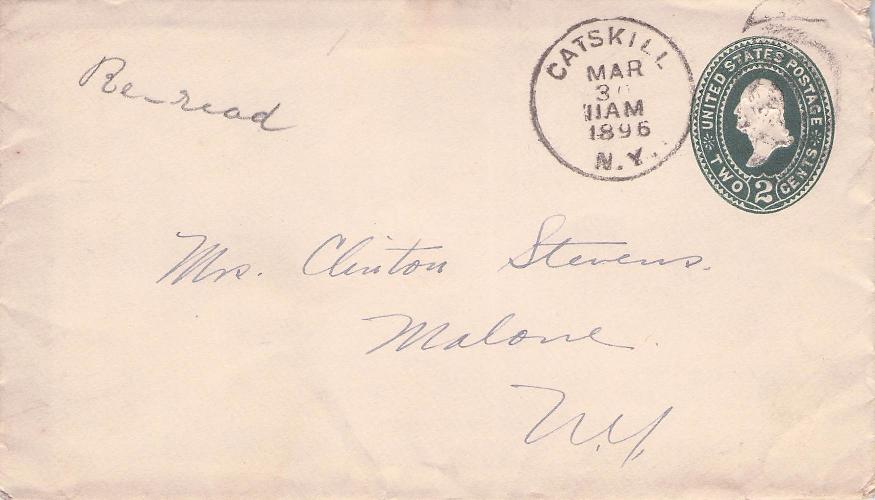 Re-read
CATSKILL
MAR
11AM
1896
N.Y.
UNITED STATES POSTAGE
TWO 2 CENTS
Mrs. Clinton Stevens.
Malone.
N.Y.